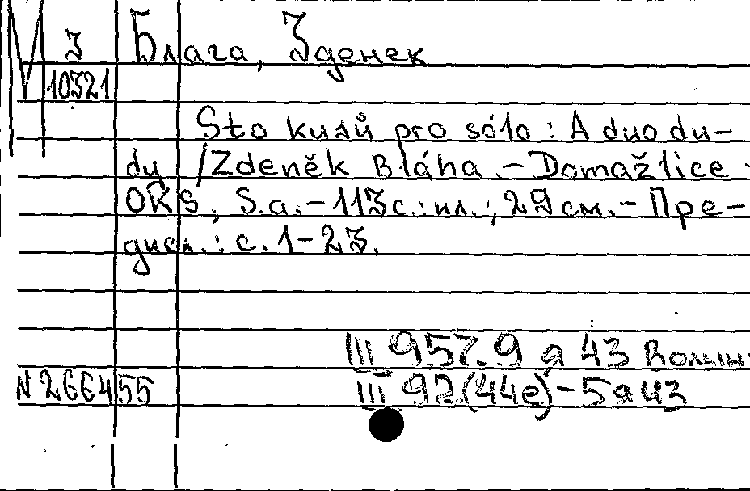 М З Блага, Зденек
10321
Sto kusů pro sólo: A duo du-
dy / Zdeněk Bláha. - Domažlice:
OKS, S.a. - 113 с.: ил.; 29 см. - Пре-
дисл.: с. 1-23.
III 957.9 я 43
N 266455 III 92(44е)-5 а из